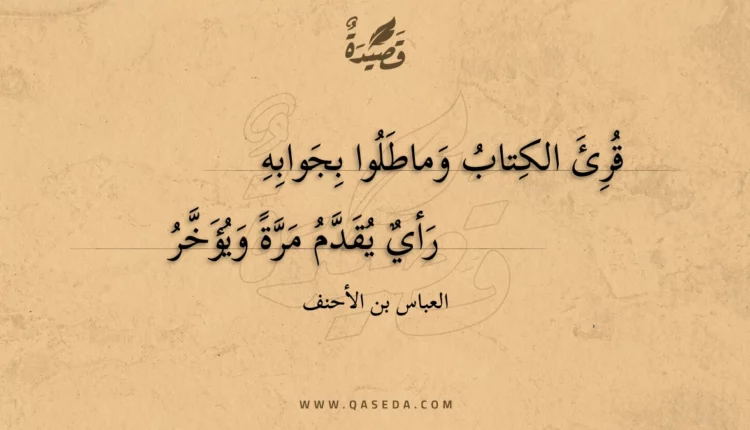 قَصِيْدَةٌ
قُرِئَ الكِتابُ وَماطَلُوا بِجَوابِهِ
رَأيٌ يُقَدَّمُ مَرَّةً وَيُؤَخَّرُ
العباس بن الأحنف
WWW.QASEDA.COM